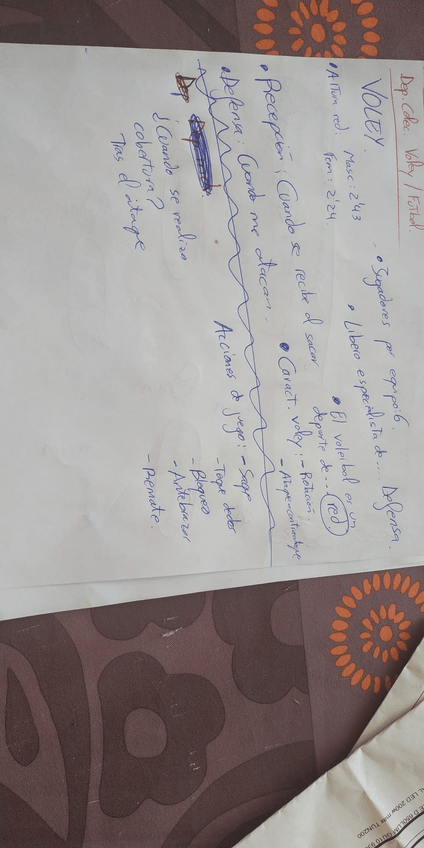 Dep. Colec. Voley / Fútbol
VOLEY.
• Jugadores por equipo: 6
• Líbero especialista de... Defensa.
• Altura red: Masc: 2'43
Fem: 2'24
• El voleibol es un
deporte de... red
• Recepción: Cuando se recibe el sacar
• Caract. voley: - Rotación
- Ataque-contraataque
• Defensa: Cuando me atacan...
Acciones de juego: - Saque
- Toque dedos
- Bloqueo
- Antebrazos
- Remate.
¿Cuándo se realiza
cobertura?
Tras el ataque